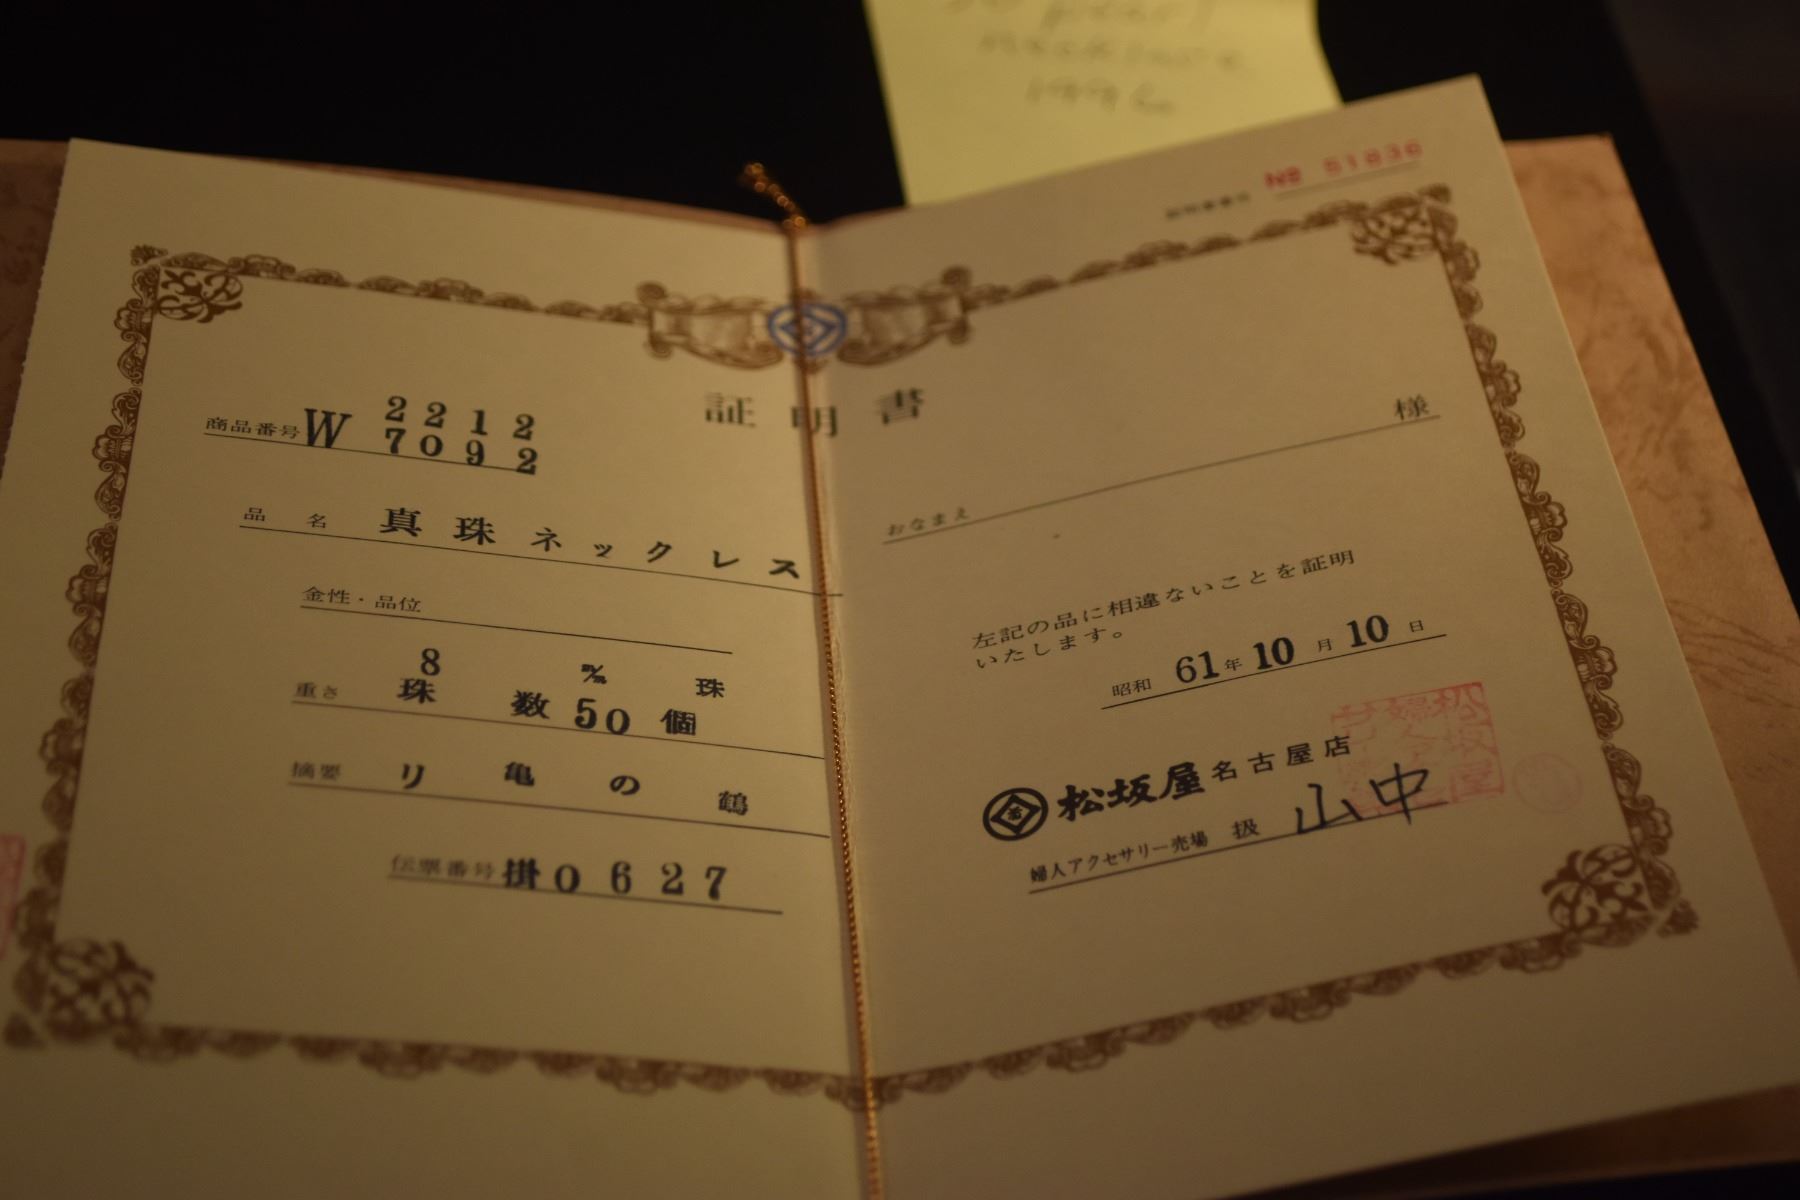 necklace
1996
№ 51836
証明書
商品番号 W 2212
7092
品名 真珠ネックレス
金性・品位
8 m/m 珠
重さ 珠数50個
摘要 リ亀の鶴
伝票番号 掛0627
様
おなまえ
左記の品に相違ないことを証明
いたします。
昭和61年10月10日
松坂屋 名古屋店
婦人アクセサリー売場 扱 山中